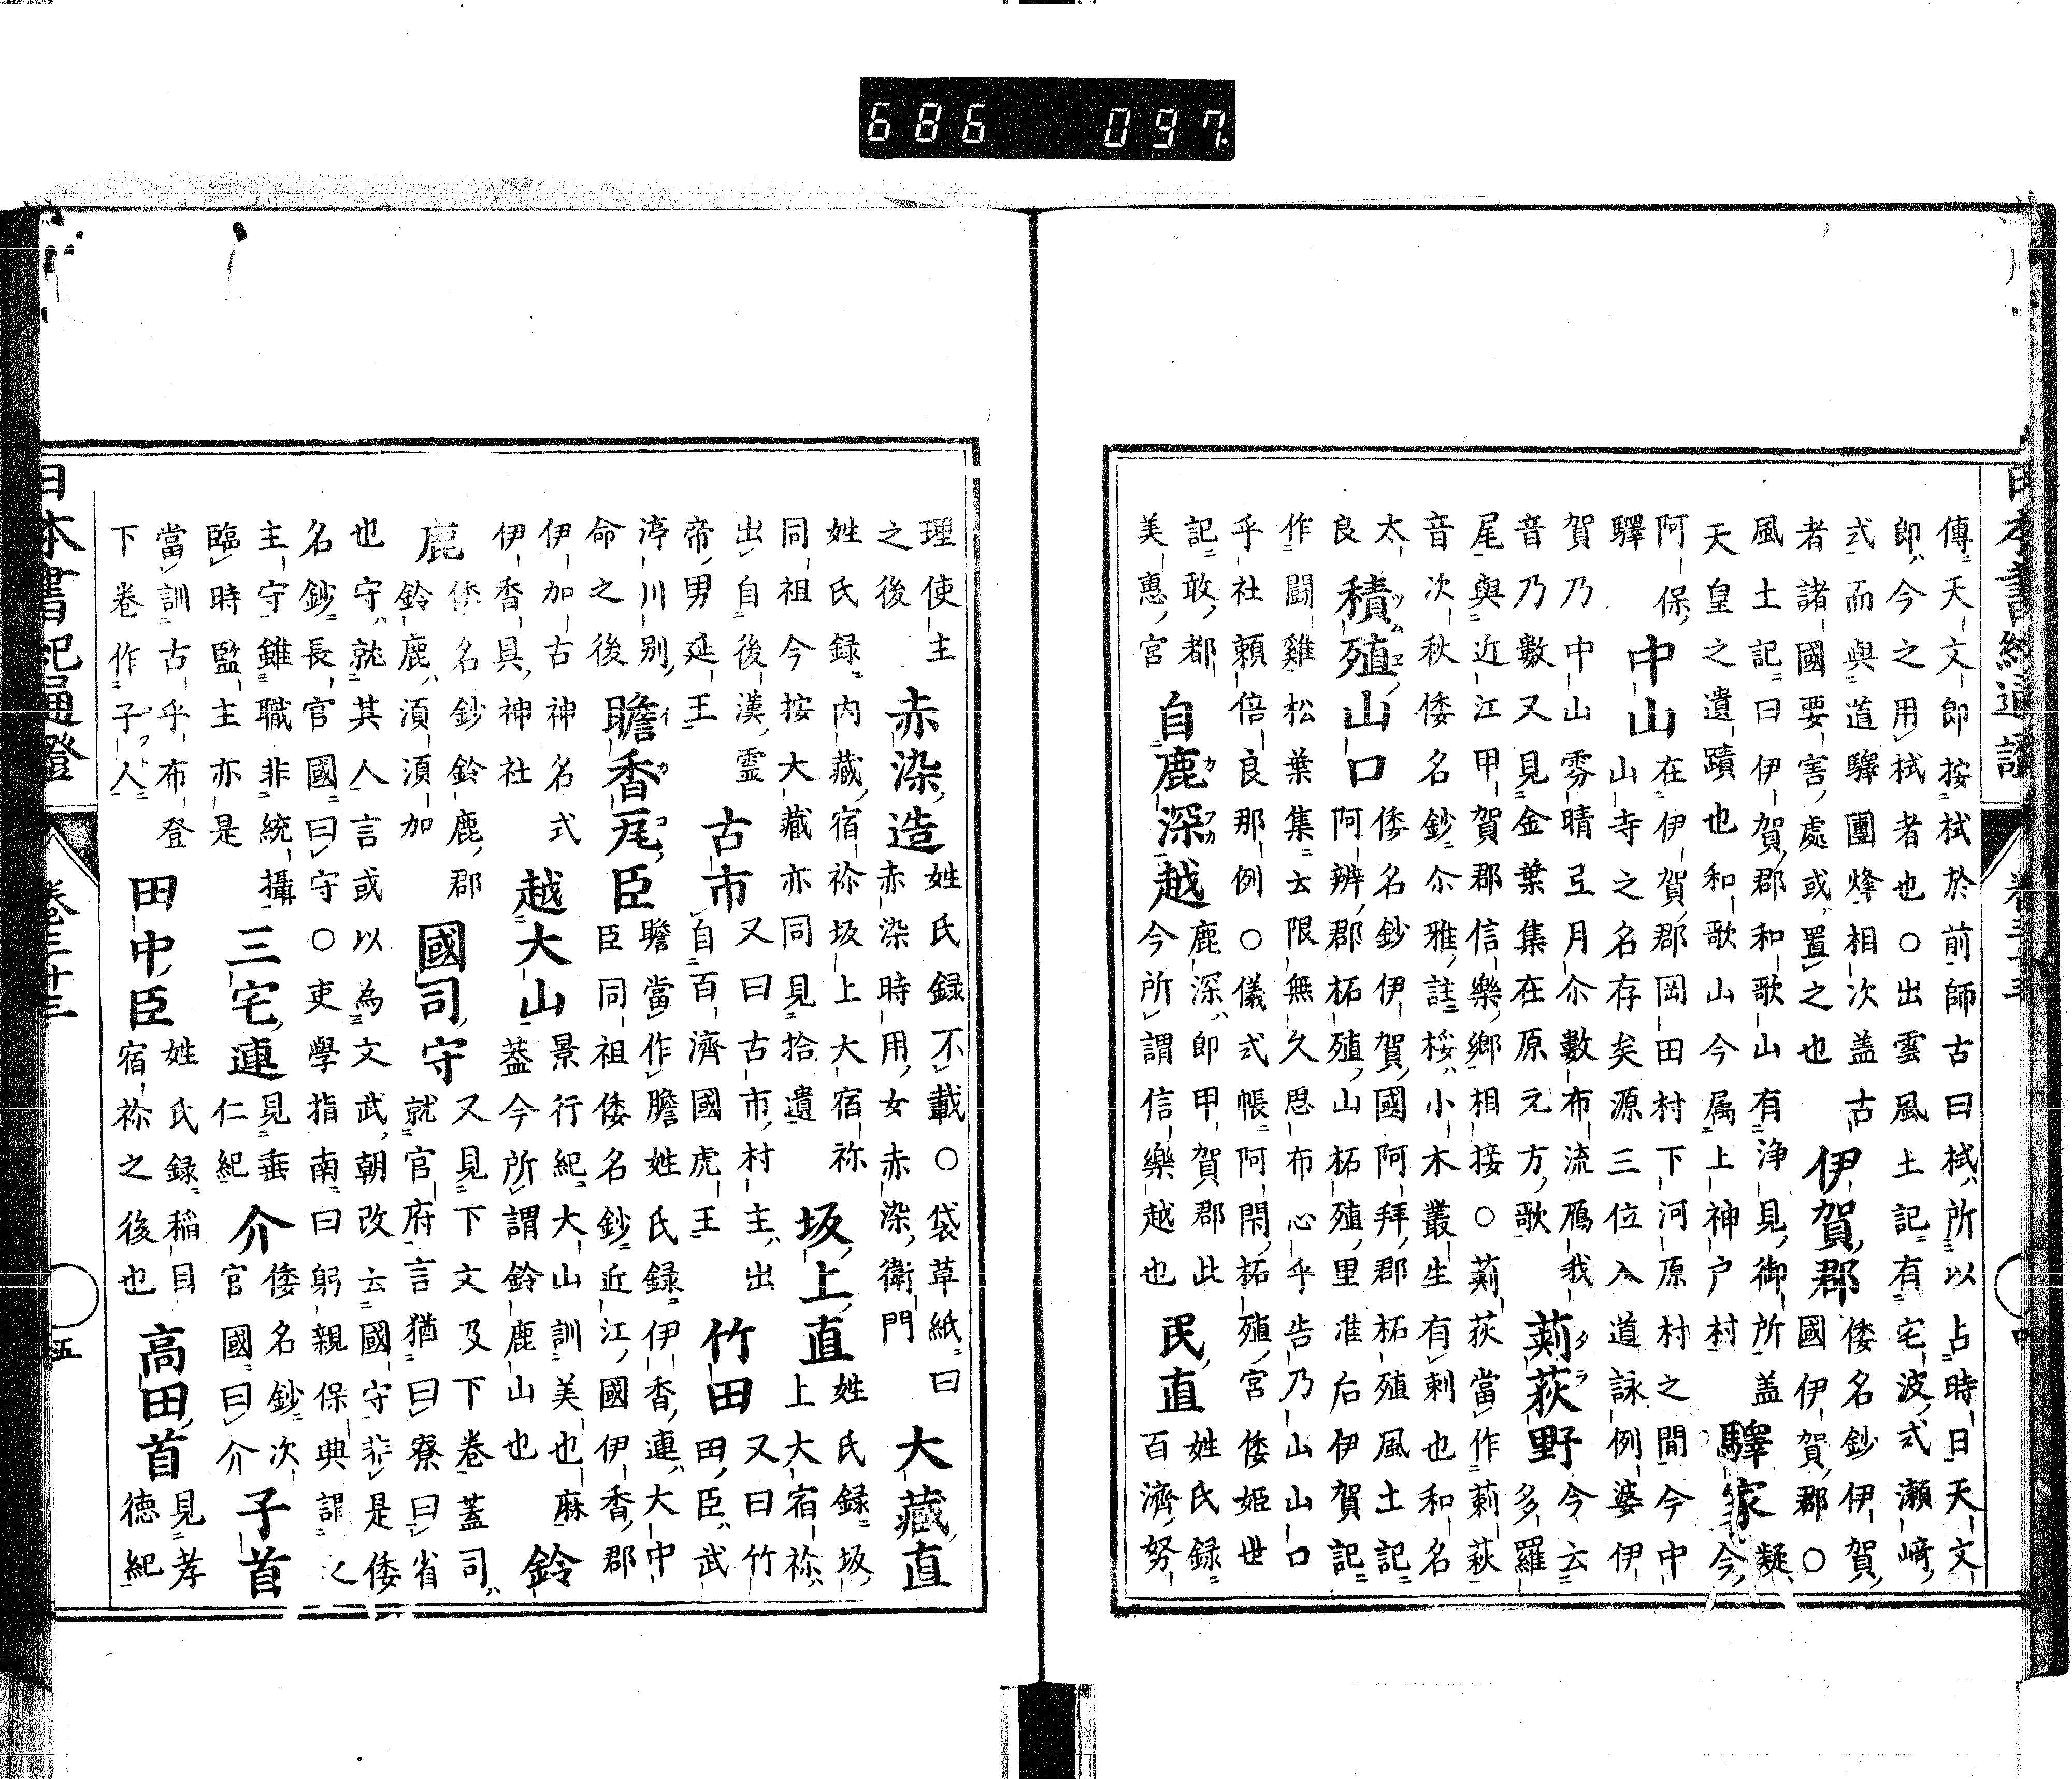 686 097
傳天文郎按栻於前師古曰栻所以占時日天文
郎今之用栻者也○出雲風土記有宅波式瀬﨑
式而與道驛團烽相次盖古
者諸國要害處或置之也
伊賀郡
倭名鈔伊賀
國伊賀郡○
風土記曰伊賀郡和歌山有浄見御所盖
天皇之遺蹟也和歌山今属上神戸村
驛家
疑
今
阿保
驛
中山
在伊賀郡岡田村下河原村之間今中
山寺之名存矣源三位入道詠例婆伊
賀乃中山雰晴互月尒數布流鴈我
音乃數又見金葉集在原元方歌
莿萩野
タラ
今云
多羅
尾與近江甲賀郡信樂郷相接○莿萩當作莿萩
音次秋倭名鈔尒雅註桵小木叢生有刺也和名
太
良
積殖山口
ツムエ
倭名鈔伊賀國阿拜郡柘殖風土記
阿辨郡柘殖山柘殖里准后伊賀記
作闘雞松葉集云限無久思布心乎告乃山山口
乎社頼倍良那例○儀式帳阿閇柘殖宮倭姫世
記敢都
美惠宮
自鹿深越
カフカ
鹿深即甲賀郡此
今所謂信樂越也
民直
姓氏録
百濟努
理使主
之後
赤染造
姓氏録不載○袋草紙曰
赤染時用女赤染衛門
大藏直
姓氏録内藏宿祢坂上大宿祢
同祖今按大藏亦同見拾遺
坂上直
姓氏録坂
上大宿祢
出自後漢霊
帝男延王
古市
又曰古市村主出
自百濟國虎王
竹田
又曰竹
田臣武
渟川別
命之後
瞻香尾臣
イカコ
瞻當作膽姓氏録伊香連大中
臣同祖倭名鈔近江國伊香郡
伊加古神名式
伊香具神社
越大山
景行紀大山訓美也麻
蓋今所謂鈴鹿山也
鈴
鹿
倭名鈔鈴鹿郡
鈴鹿湏湏加
國司守
又見下文及下卷蓋司
就官府言猶曰寮曰省
也守就其人言或以為文武朝改云國守非是倭
名鈔長官國曰守○吏學指南曰躬親保典謂之
主守錐職非統攝
臨時監主亦是
三宅連
見垂
仁紀
介
倭名鈔次
官國曰介
子首
當訓古乎布登
下卷作子人
田中臣
姓氏録稲目
宿祢之後也
高田首
見孝
德紀
日本書紀通證
卷三十三
五